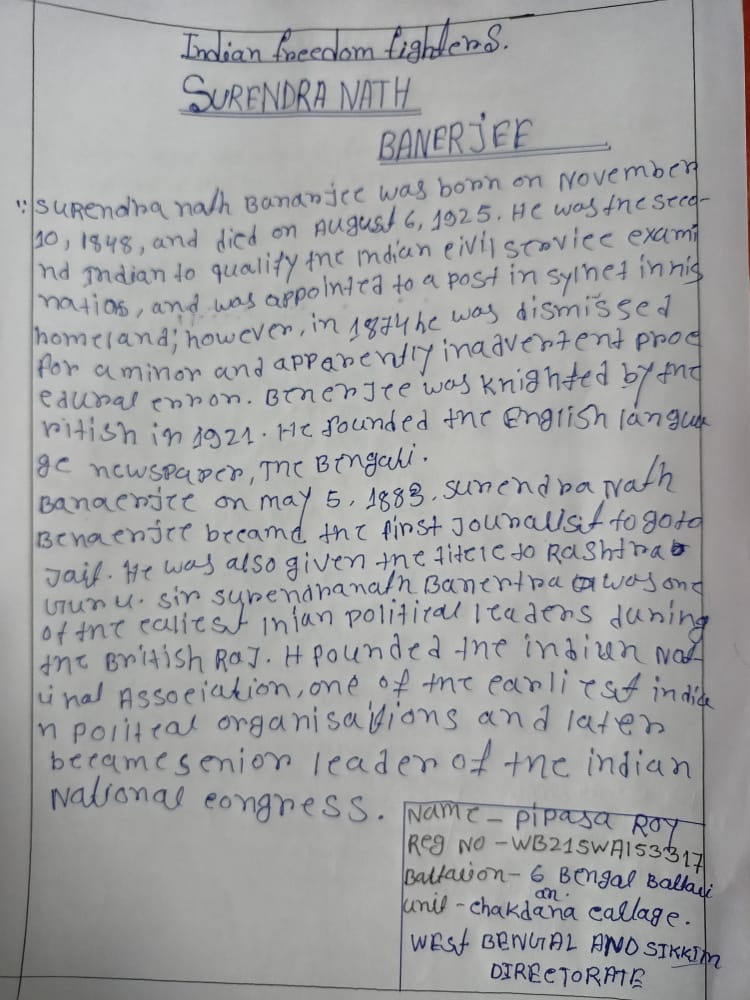 Indian freedom fighters.
SURENDRA NATH
BANERJEE
SURENdra nath Bananjee was born on November
10, 1848, and died on August 6, 1925. He was the seco-
nd Indian to qualify the Indian civil service exami
nation, and was appointed to a post in sylhet in his
homeland; however, in 1874 he was dismissed
for a minor and apparently inadvertent proc
edural error. Benerjee was knighted by the
ritish in 1921. He founded the English langua
ge newspaper, The Bengali.
Banaerjee on may 5, 1883. surendra Nath
Benaerjee becamd the first Journalisit to go to
Jail. He was also given the titele to Rashtra
Guru. sir surendranath Banertra was one
of the ealiest Inian political leaders during
the British Raj. H founded the indian Nat
ional Association, one of the earliest india
n politcal organisations and later
became senior leader of the indian
National congress.
Name - Pipasa ROY
Reg No - WB21SWA153317
Battalion - 6 Bengal Battali
on.
unit - chakdaha callage.
WEST BENGAL AND SIKKIM
DIRECTORATE